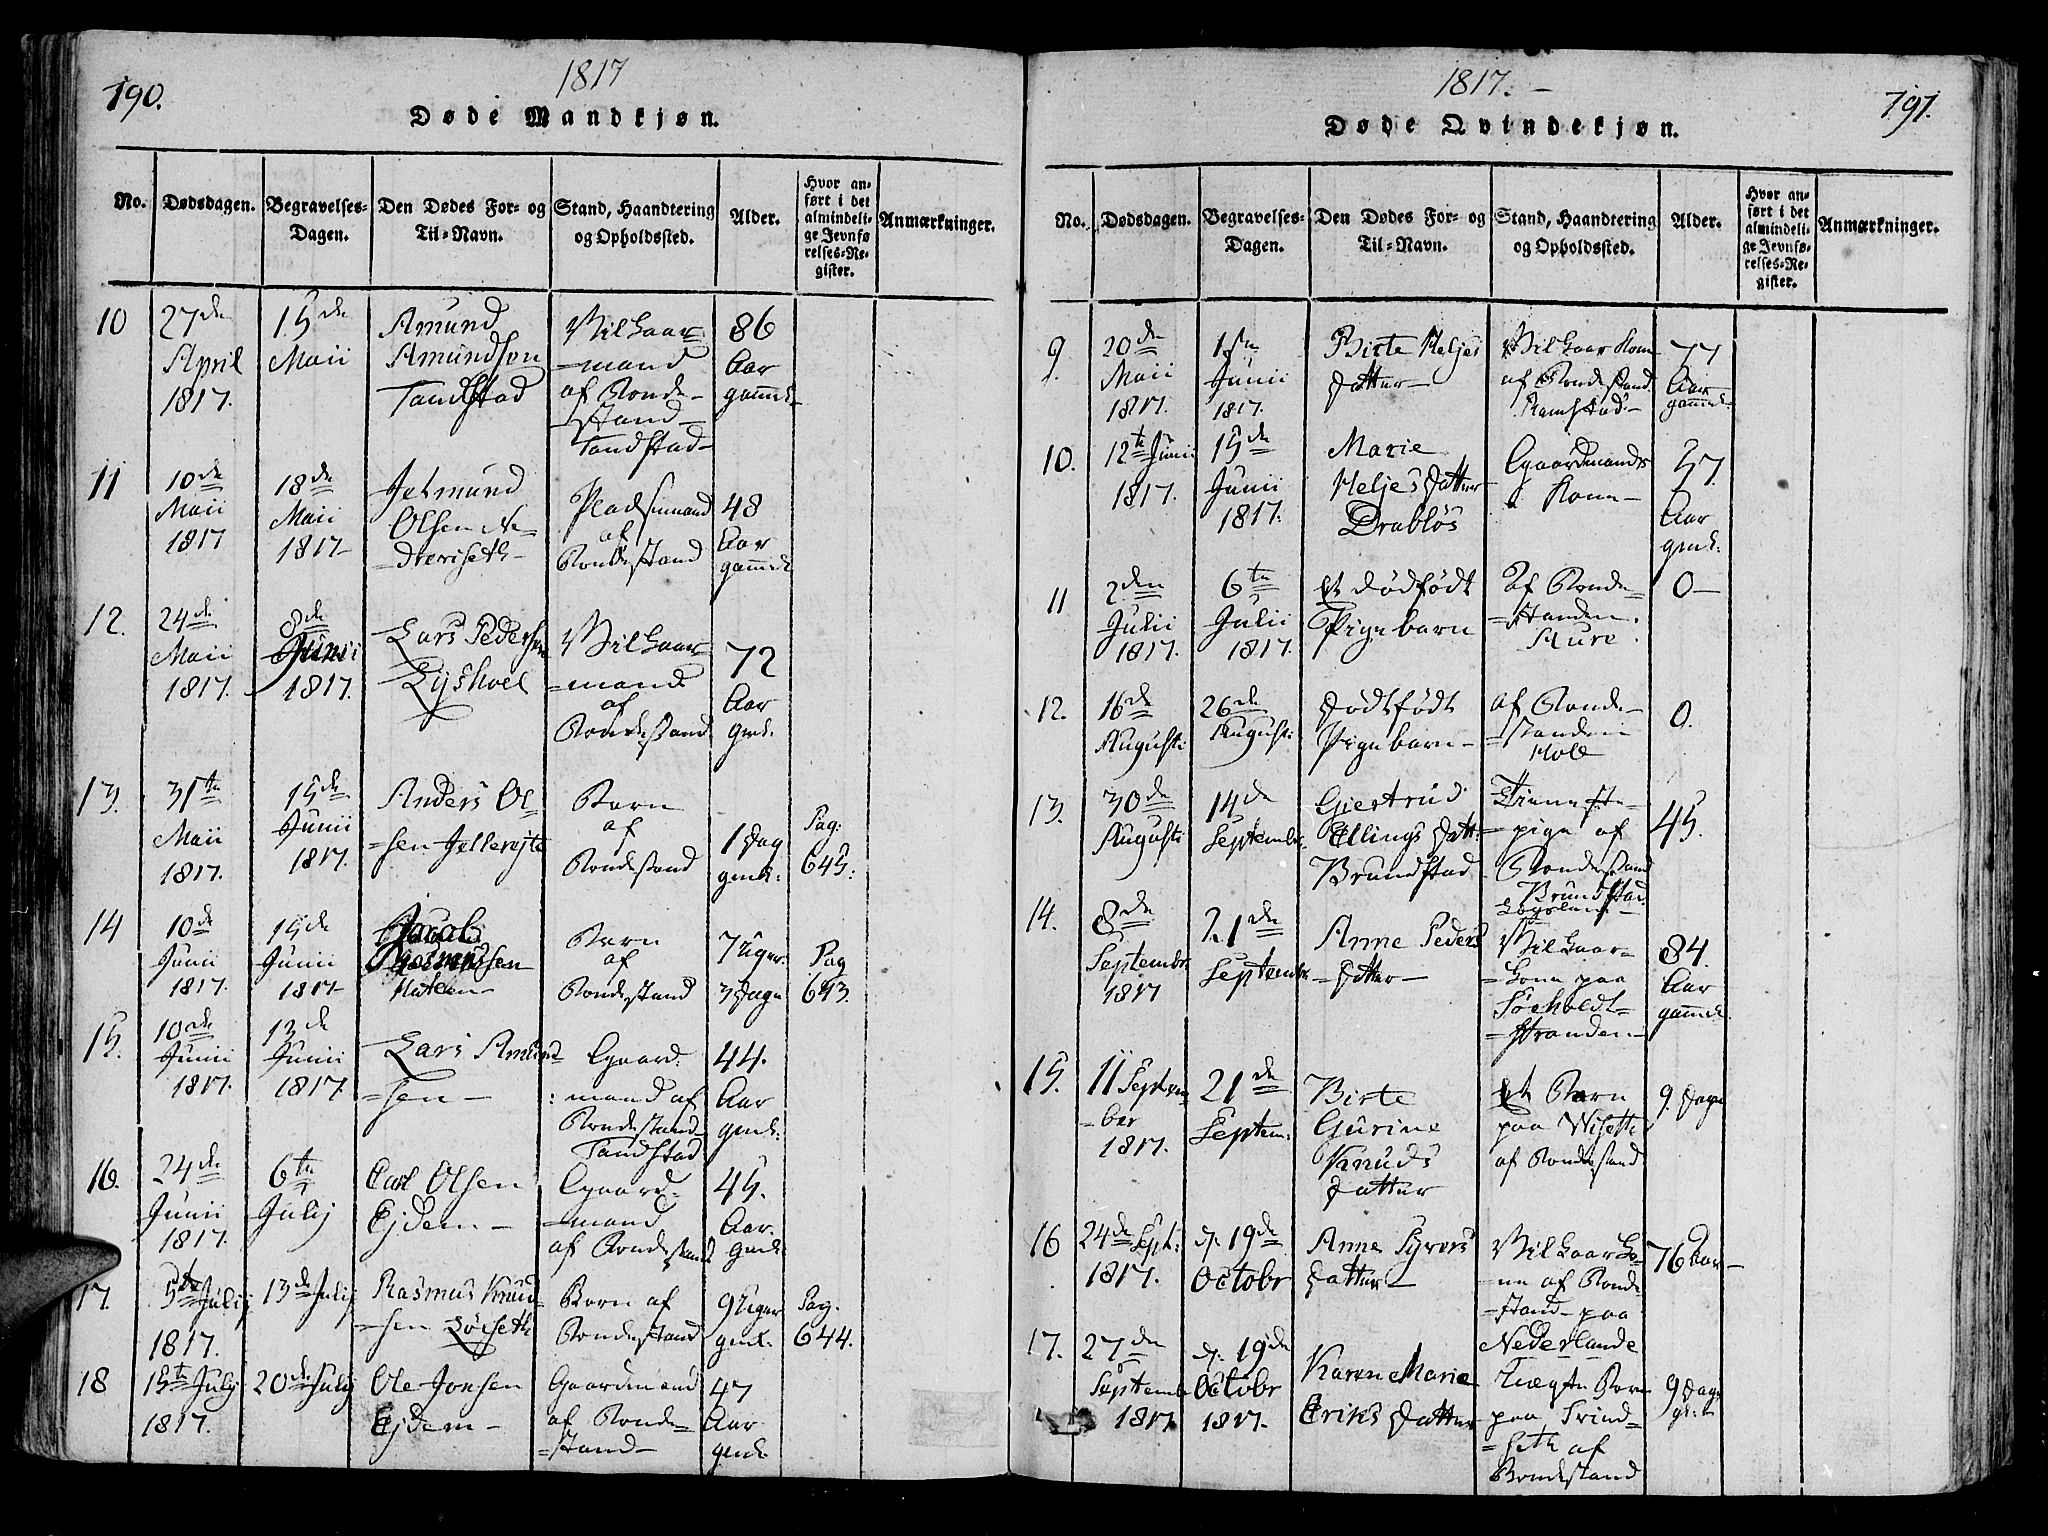 190.
1817
Døde Mandkjøn.
No.
Dødsdagen.
Begravelses-
Dagen.
Den Dødes For- og
Til-Navn.
Stand, Haandtering
og Opholdssted.
Alder.
Hvor an-
ført i det
almindeli-
ge Jevnfø
relses-Re-
gister.
Anmærkninger.
10
27de
April
1817.
15de
Maii
Amund
Amundsøn
Tandstad
Vilkaar-
-mand
af Bonde-
-stand-
Tandstad-
86
Aar
gammel-
11
10de
Maii
1817
18de
Maii
1817-
Jetmund
Olsen Ne-
-dreviseth-
Pladsmand
af
Bondestand
48
Aar
gammel
12.
24de
Maii
1817.
8de
Junii
1817.
Lars Pedersen
Lyshoel
Vilkaar-
=mand
af
Bondestand
72
Aar
gml.
13.
31te
Maii
1817.
15de
Junii
1817.
Anders Ol-
=sen Jellevigte
Barn
af
Bondestand
1 Dag
gml:
Pag:
645:
14
10de
Junii
1817.
15de
Junii
1817-
Jacob
Rasmussen
Barn
af
Bondestand
7 Uger
3 Dage
Pag
643.
15.
10de
Junii
1817.
13de
Junii
1817.
Lars Amund-
=sen-
Gaard:
:mand af
Bondestand
Tandstad
44.
Aar
gml:
16.
24de
Junii
1817.
6te
Julij
Carl Olsen
Ejdem-
Gaard-
-mand
af Bondestand
45.
Aar.
gml.
17.
5te Julij
1817.
13de Julij
Rasmus Knud-
=sen Løiseth
Barn af
Bondestand
9 Uger
gml.
Pag.
644.
18
15te Julij
1817.
20de Julij
Ole Jonsen
Ejdem-
Gaardmand
af Bonde=
=stand-
47
Aar
gml.
1817.-
191.
Døde Qvindekjøn.
No.
Dødsdagen.
Begravelses-
Dagen.
Den Dødes For- og
Til-Navn.
Stand, Haandtering
og Opholdssted.
Alder.
Hvor an-
ført i det
almindeli-
ge Jevnfø-
relses-Re-
gister.
Anmærkninger.
9.
20de
Maii
1817.
1ste
Junii
1817.
Birte Heljes
Datter-
Vilkaar Kone
af Bondestand
Ramstad-
77
Aar
gammel-
10.
12te Junii
1817.
15de
Junii
1817.
Marie
Heljes Datter
Drabløs
Gaardmands
Kone-
57.
Aar
gml:
11
2den
Julii
1817.
6te
Julii
1817.
Et dødfødt
Pigebarn
af Bonde=
-standen.
Aure.
0-
12.
16de
Augusti
26de
Augusti
Dødtfødt
Pigebarn-
af Bonde-
=standen
Holl
0.
13.
30de
Augusti
14de
Septembr.
Giertrud
Ellings Datt:
Brundstad
Tieneste-
-pige af
Bondestand
Brundstad
45.
14.
8de
Septembr.
1817
21de
Septembr.
Anne Peders
-Datter-
Vilkaar-
=kone paa
Søeholdt-
=stranden-
84.
Aar
gammel.
15.
11 Septem-
-ber
1817.
21de
Septem:
Birte
Gurine
Knuds
Datter
Et Barn
paa Wiseth
af Bondestand
9. Dage
16
24de Sept:
1817.
d. 19de
Octobr
Anne Syvers
Datter-
Vilkaar Ko-
-ne af Bonde
-stand-paa
Nederlande
76 Aar-
17.
27de
Septembr
1817.
d. 19de
Octobr
1817.
Karen Marie
Eriks Datter
Uægte Barn
paa Svind-
=seth af
Bondestand
9 Dage
gl: